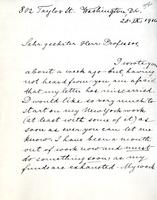 802 Taylor St. Washington D.C.
Sehr geehrter Herr Professor,
I wrote you
about a week ago - but having
not heard from you am afraid
that my letter has miscarried.
I would like so very much to
start on my New York work
(at least with some of it) as
soon as ever you can let me
know. I have been a month
out of work now and must do
something soon as my
funds are exhausted. My work